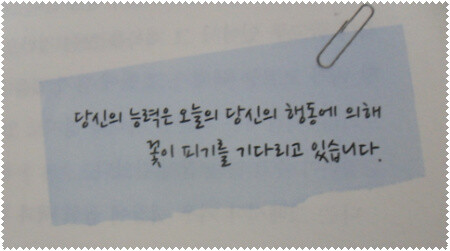 당신의 능력은 오늘의 당신의 행동에 의해
꽃이 피기를 기다리고 있습니다.